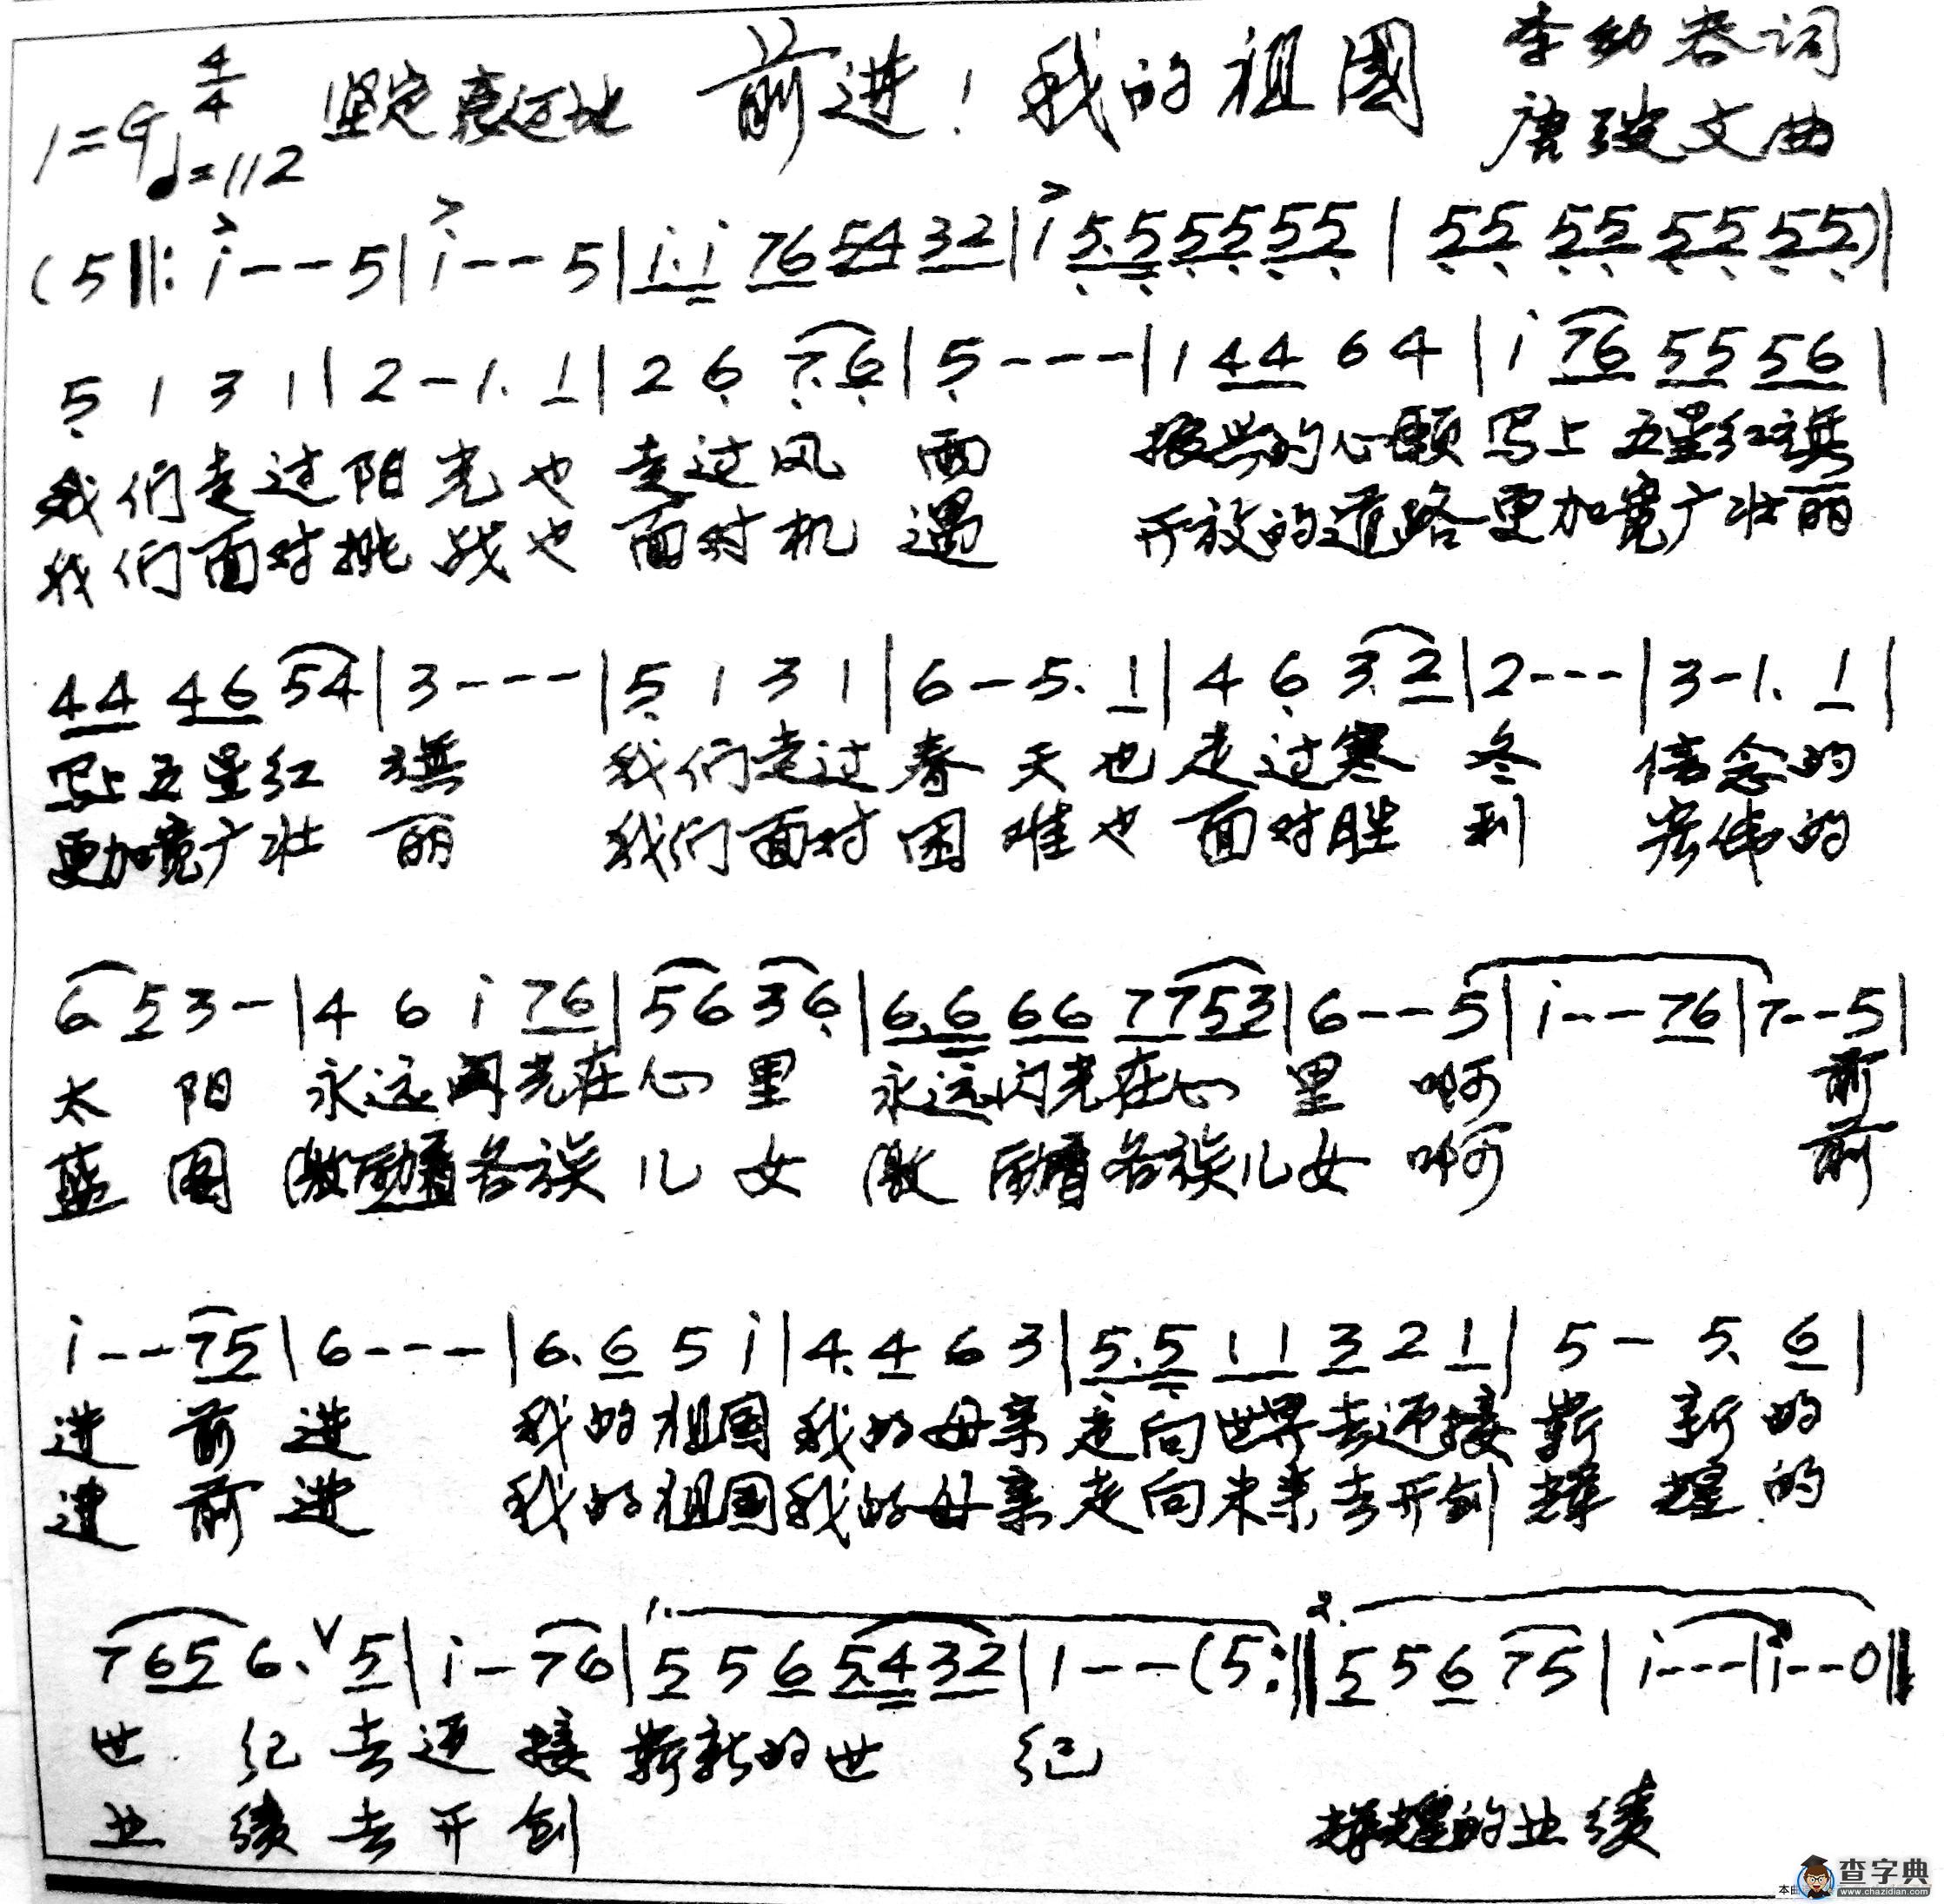 1=G 4/4 ♩=112 坚定豪迈地 前进！我的祖國 李幼容词
唐诃文曲
(5‖: i - - 5 | i - - 5 | i. i 76 54 32 | i 5.5 55 55 | 55 55 55 55) |
5 1 3 1 | 2 - 1. 1 | 2 6 7.6 | 5 - - - | 1 44 6 4 | i 76 55 56 |
我们走过阳光也走过风雨 振兴的心愿写上五星红旗
我们面对挑战也面对机遇 开放的道路更加宽广壮丽
44 46 54 | 3 - - - | 5 1 3 1 | 6 - 5. 1 | 4 6 3.2 | 2 - - - | 3 - 1. 1 |
写上五星红旗 我们走过春天也走过寒冬 信念的
更加宽广壮丽 我们面对困难也面对胜利 宏伟的
6. 5 3 - | 4 6 i 76 | 56 36 | 6.6 66 7753 | 6 - - 5 | i - - 76 | 7 - - 5 |
太阳 永远闪光在心里 永远闪光在心里 啊 前
蓝图 激励着各族儿女 激励着各族儿女 啊 前
i - - 75 | 6 - - - | 6. 6 5 i | 4. 4 6 3 | 5.5 11 3 2 1 | 5 - 5. 6 |
进 前进 我的祖国我的母亲走向世界去迎接崭新的
进 前进 我的祖国我的母亲走向未来去开创辉煌的
765 6. V 5 | i - 76 | 1. 5 5 6 5.432 | 1 - - (5 :‖ 2. 5 5 6 75 | i - - - | i - - 0 ‖
世纪去迎接崭新的世纪
业绩去开创 辉煌的业绩
查字典
www.chazidian.com